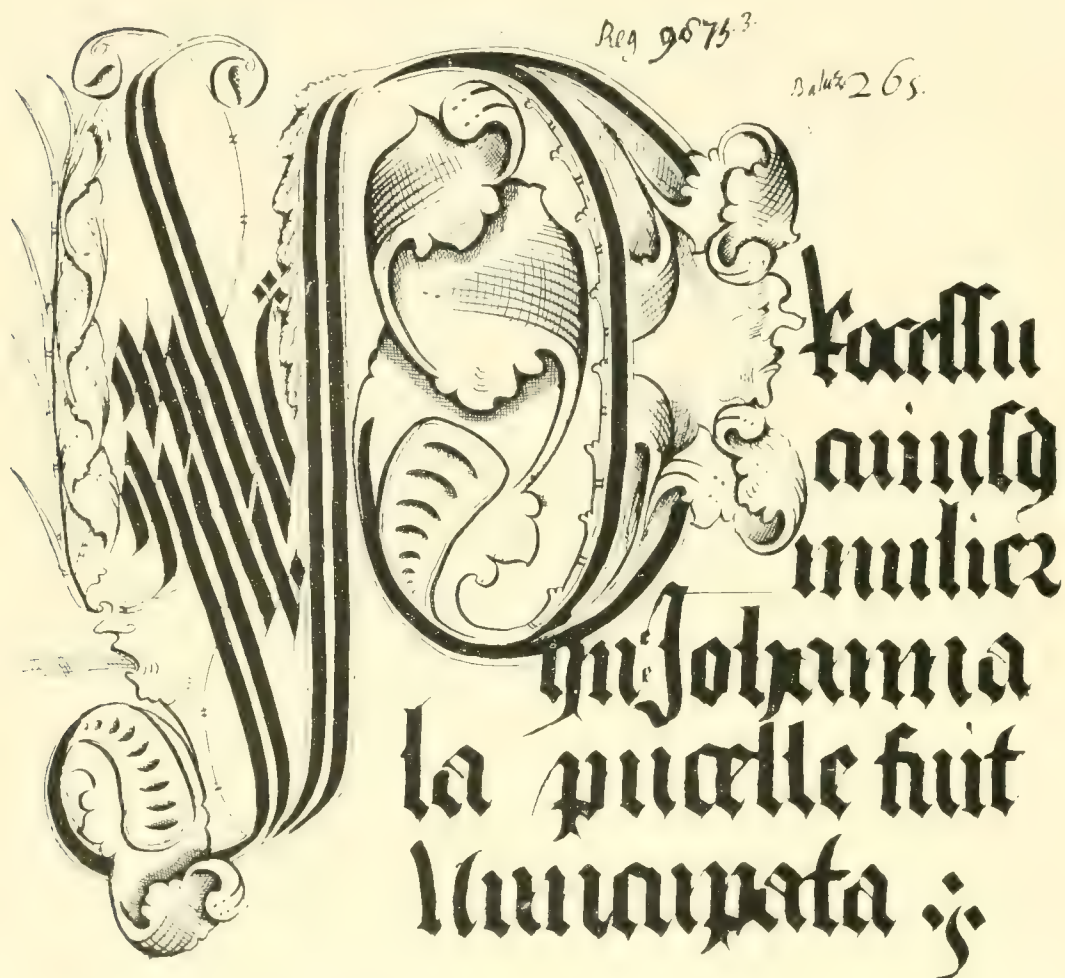 Reg 9675.3.
Baluze 265.
Processu
cuiusd
mulier
que Johanna
la pucelle fuit
Nuncupata